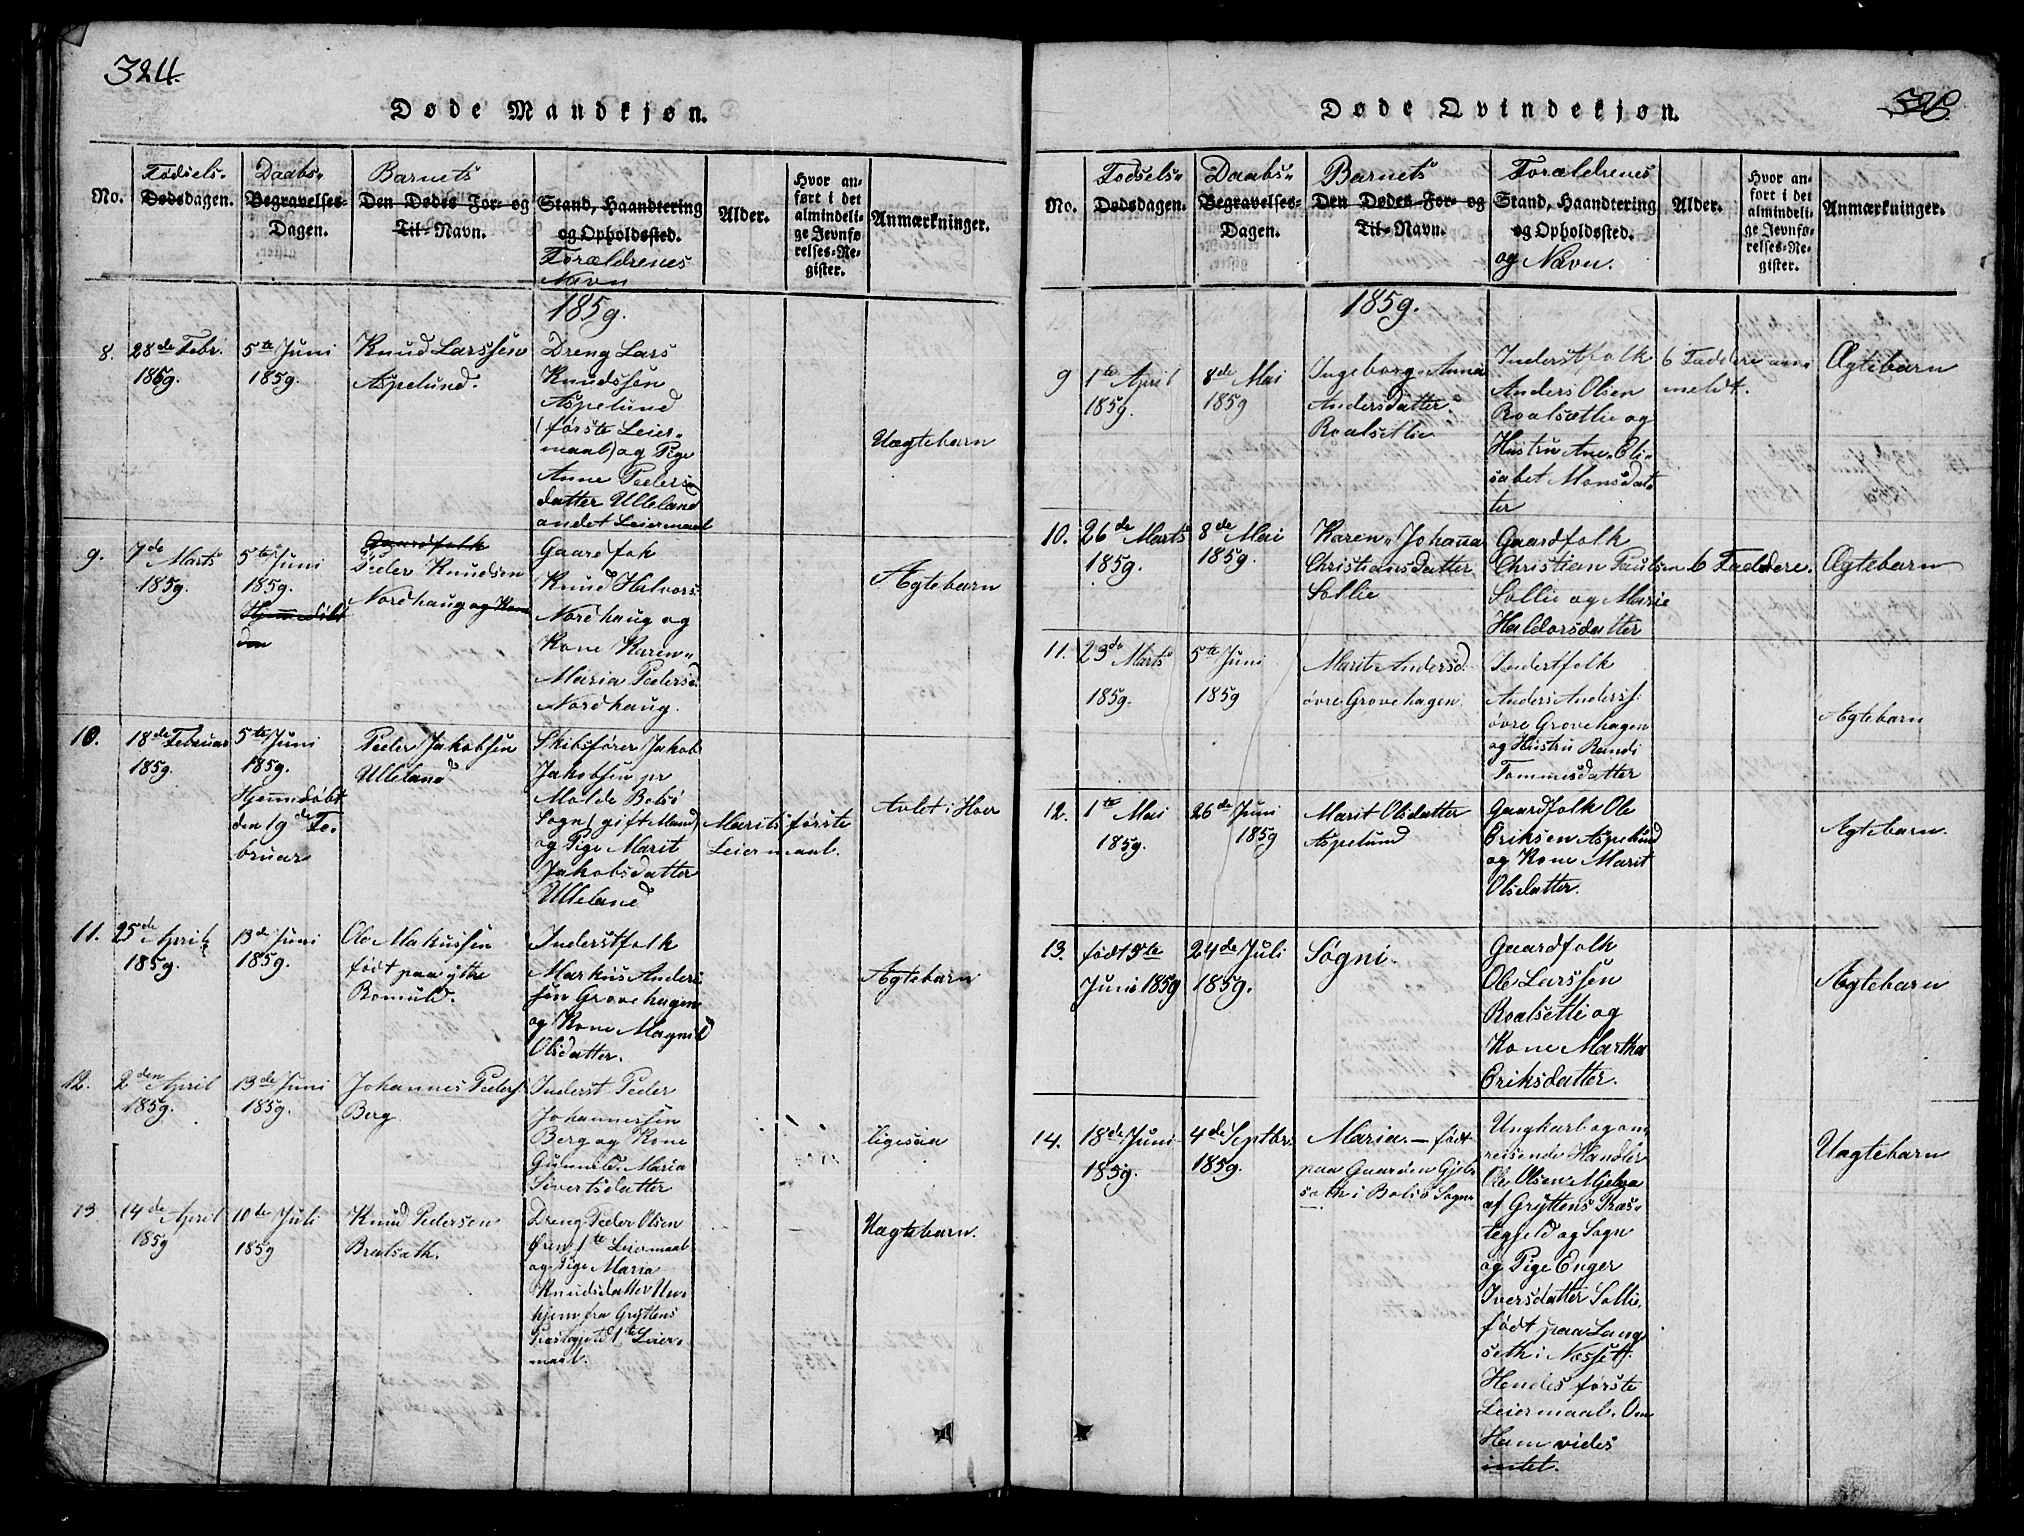 324.
Døde Mandkjøn.
No.
Fødsels-
Dødsdagen.
Daabs-
Begravelses-
Dagen.
Barnets
Den Dødes For- og
Til-Navn.
Stand, Haandtering
og Opholdssted.
Forældrenes
Navn
Alder.
Hvor an-
ført i det
almindeli-
ge Jevnfø-
relses-Re-
gister.
Anmærkninger.
1859.
8.
28de Febr.
1859.
5te Juni
1859.
Knud Larssen
Aspelund.
Dreng Lars
Knudssen
Aspelund
(første Leier-
maal) og Pige
Anne Peders-
datter Ulleland
andet Leiermaal
Uægtebarn
9.
7de Marts
1859.
5te Juni
1859.
Hjemmedøbt
den
Gaardfolk
Peder Knudsen
Nordhaug og Kone
Gaardfok
Knud Halvors-
Nordhaug og
Kone Karen-
Maria Peders-
Nordhaug.
Ægtebarn
10.
18de Februar
1859.
5te Juni
1859.
Hjemmedøbt
den 19de Fe-
bruar
Peder Jakobsen
Ulleland
Skibsfører Jakob
Jakobsen pr
Molde Bolsø
Sogn (gift Mand)
og Pige Marit
Jakobsdatter
Ulleland
Marits første
Leiermaal.
Avlet i Hoer
11.
25de April
1859.
13de Juni
1859.
Ole Markussen
født paa ytre
Romuld.
Inderstfolk
Markus Anders-
sen Grovehagen
og Kone Magnild
Olsdatter.
Ægtebarn
12.
2den April
1859.
13de Juni
1859.
Johannes Peders.
Berg.
Inderst Peder
Johannessen
Berg og Kone
Gunnild Maria
Sivertsdatter
ligesaa
13
14de April
1859
10de Juli
1859
Knud Pedersen
Bratsæth.
Dreng Peder Olsen
Øren 1te Leiermaal
og Pige Maria
Knudsdatter Un-
hjem fra Gryttens
Præstegjeld 1te Leier-
maal.
Uægtebarn.
326
Døde Qvindekjøn.
No.
Fødsels-
Dødsdagen.
Daabs-
Begravelses-
Dagen.
Barnets
Den Dødes For- og
Til-Navn.
Forældrenes
Stand, Haandtering
og Opholdssted.
og Navn.
Alder.
Hvor an-
ført i det
almindeli-
ge Jevnfø-
relses-Re-
gister.
Anmærkninger.
1859.
9
1te April
1859.
8de Mai
1859
Ingeborg-Anna
Andersdatter
Roalsetlie
Inderstfolk
Anders Olsen
Roalsætlie og
Hustru Ane Eli-
sabet Monsdat-
ter
6 Faddere an-
meldt.
Ægtebarn
10.
26de Marts
1859.
8de Mai
1859.
Karen-Johanna
Christiansdatter
Sollie
Gaardfolk
Christian Paulsen
Sollie og Marie
Haldorsdatter
6 Faddere.
Ægtebarn
11.
23de Marts
1859.
5te Juni
1859
Marit Andersd.
øvre Grovehagen
Inderstfolk
Anders Anderss.
øvre Grovehagen
og Hustru Randi
Tommesdatter
Ægtebarn
12.
1te Mai
1859.
26de Juni
1859
Marit Olsdatter
Aspelund
Gaardfolk Ole
Eriksen Aspelund
og Kone Marit
Olsdatter.
Ægtebarn.
13.
født 5te
Juni 1859
24de Juli
1859.
Søgni.
Gaardfolk
Ole Larssen
Roalsetli og
Kone Martha
Eriksdatter.
Ægtebarn
14.
18de Juni
1859.
4de Septbr.
1859.
Maria. – født
paa Gaarden Gjel-
sæth i Bolsø Sogn
Ungkarl og om-
reisende Handler
Ole Olsen Mjelva
af Gryttens Præs-
tegjeld og Sogn
og Pige Enger
Iversdatter Sollie,
født paa Lang-
seth i Næsset.
Hendes første
Leiermaal. Om
Ham vides
intet.
Uægtebarn